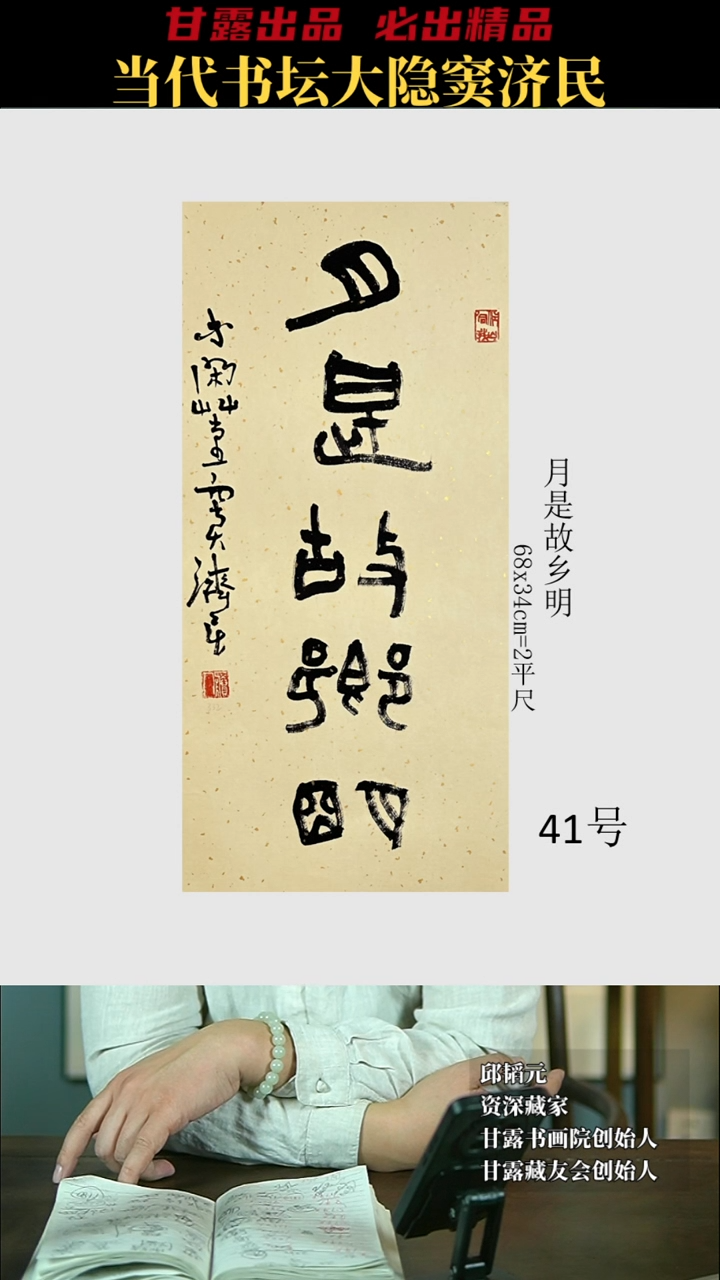 甘露出品 必出精品
当代书坛大隐窦济民
月是故鄉明
月是故乡明
68x34cm=2平尺
41号
邱韬元
资深藏家
甘露书画院创始人
甘露藏友会创始人